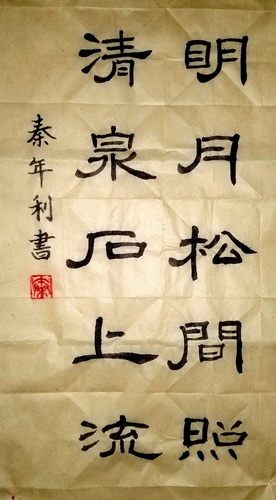 明月松間照
清泉石上流
秦年利書